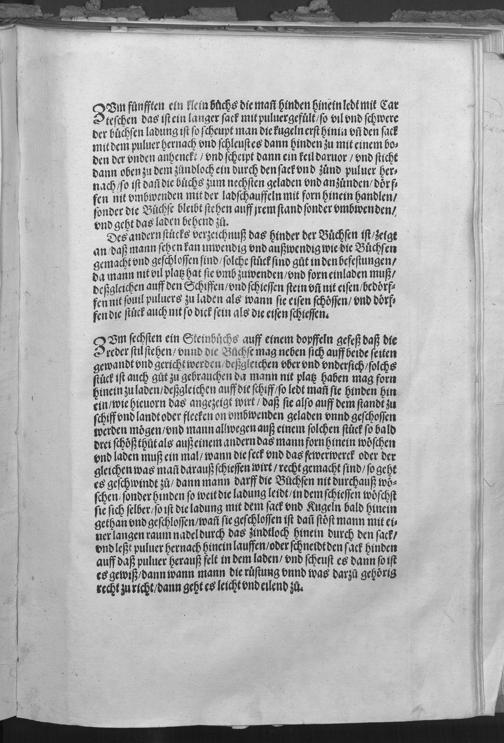 ZVm fünfften ein klein büchs die mañ hinden hinein ledt mit Car
teschen das ist ein langer sack mit puluer gefült/ so vil vnd schwere
der büchsen ladung ist so scheupt man die kugeln erst hinin vñ den sack
mit dem puluer hernach/ vnd schleust es dann hinden zu mit einem bo-
den der vnden anhenckt/ vnd scheipt dann ein keil daruor/ vnd sticht
dann oben zu dem zündloch ein durch den sack vnd zünd puluer her-
nach/ so ist dañ die büchs zum nechsten geladen vnd anzünden/ dörf-
fen nit vmbwenden mit der ladschauffeln mit forn hinein handlen/
sonder die Büchse bleibt stehen auff jrem stand sonder vmbwenden/
vnd geht das laden behend zů.
Des andern stücks verzeichnuß das hinder der Büchsen ist/ zeigt
an/ daß mann sehen kan inwendig vnd außwendig wie die Büchsen
gemacht vnd geschlossen sind/ solche stück sind gůt in den befestungen/
da mann nit vil platz hat sie vmb zuwenden/ vnd forn einladen muß/
deßgleichen auff den Schiffen/ vnd schiessen stein vñ nit eisen/ bedörf-
fen nit souil puluers zu laden als wann sie eisen schössen/ vnd dörf-
fen die stück auch nit so dick sein als die eisen schiessen.
ZVm sechsten ein Steinbüchs auff einem dopffeln gefeß daß die
reder stil stehen/ vnnd die Büchse mag neben sich auff beide seiten
gewandt vnd gericht werden/ deßgleichen vber vnd vndersich/ solchs
stück ist auch gůt zu gebrauchen da mann nit platz haben mag forn
hinein zu laden/ deßgleichen auff die schiff/ so ledt mañ sie hinden hin
ein/ wie hieuorn das angezeigt wirt/ daß sie also auff dem standt zu
schiff vnd landt oder flecken on vmbwenden geladen vnnd geschossen
werden mögen/ vnd mann allwegen auß einem solchen stück so bald
drei schöß thůt als auß einem andern das mann forn hinein wöschen
vnd laden muß ein mal/ wann die seck vnd das fewerwerck oder der
gleichen was mañ darauß schiessen wirt/ recht gemacht sind/ so geht
es geschwindt zů/ dann mann darff die Büchsen nit durchauß wö-
schen/ sonder hinden so weit die ladung leidt/ in dem schiessen wöschst
sie sich selber/ so ist die ladung mit dem sack vnd Kugeln bald hinein
gethan vnd geschlossen/ wañ sie geschlossen ist dañ stöst mann mit ei-
ner langen raum nadel durch das zindtloch hinein durch den sack/
vnd leßt puluer hernach hinein lauffen/ oder schneidt den sack hinden
auff daß puluer herauß felt in dem laden/ vnd scheust es dann so ist
es gewiß/ dann wann mann die rüstung vnnd was darzů gehörig
recht zu richt/ dann geht es leicht vnd eilend zů.